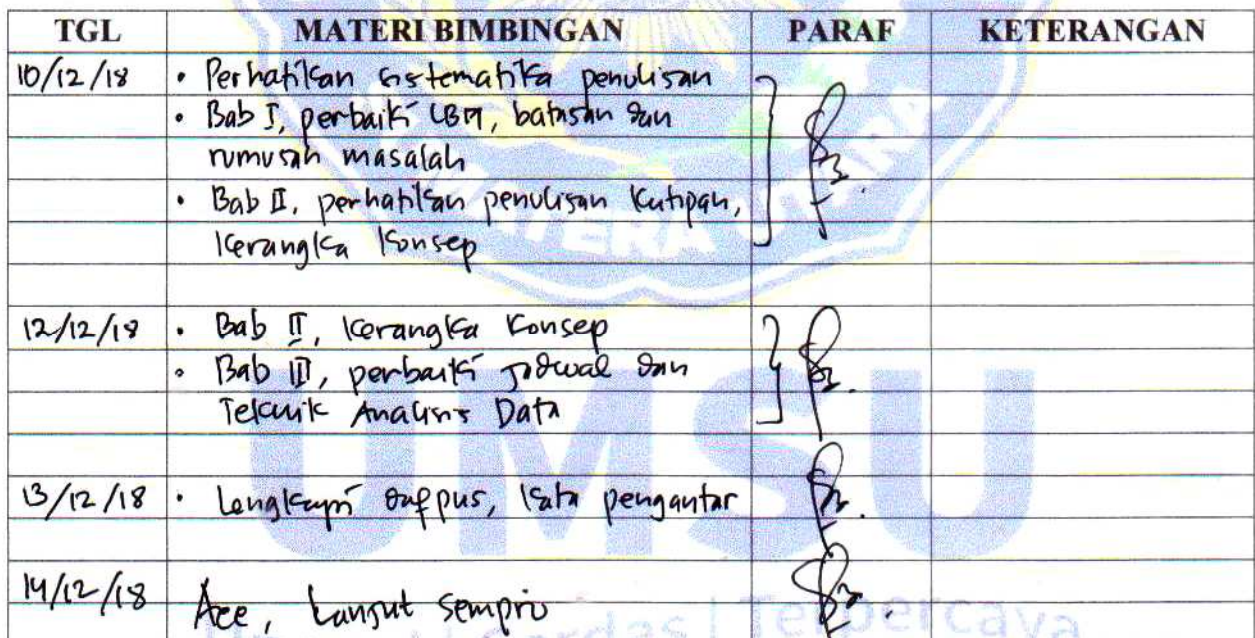 TGL MATERI BIMBINGAN PARAF KETERANGAN
10/12/18 • Perhatikan sistematika penulisan
• Bab I, perbaiki LBM, batasan dan
rumusan masalah
• Bab II, perhatikan penulisan Kutipan,
Kerangka Konsep
12/12/18 • Bab II, Kerangka Konsep
• Bab III, perbaiki jadwal dan
Teknik Analisis Data
UMSU
13/12/18 • Lengkapi dafpus, Kata pengantar
14/12/18 Acc, Lanjut sempro
Cerdas | Terpercaya